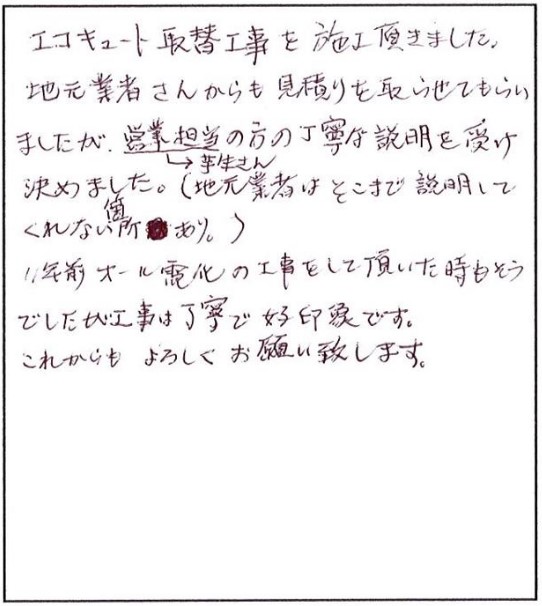 エコキュート取替工事を施工頂きました。
地元業者さんからも見積りを取らせてもらい
ましたが、営業担当の方の丁寧な説明を受け
→ さん
決めました。(地元業者はそこまで説明して
くれない箇所あり。)
11年前オール電化の工事をして頂いた時もそう
でしたが工事は丁寧で好印象です。
これからもよろしくお願い致します。